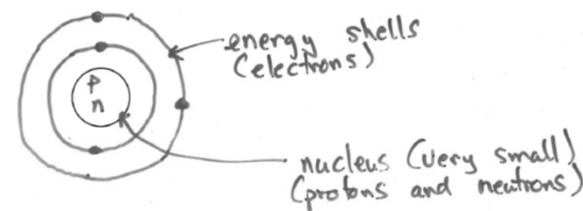 energy shells
(electrons)
p
n
nucleus (very small)
(protons and neutrons)